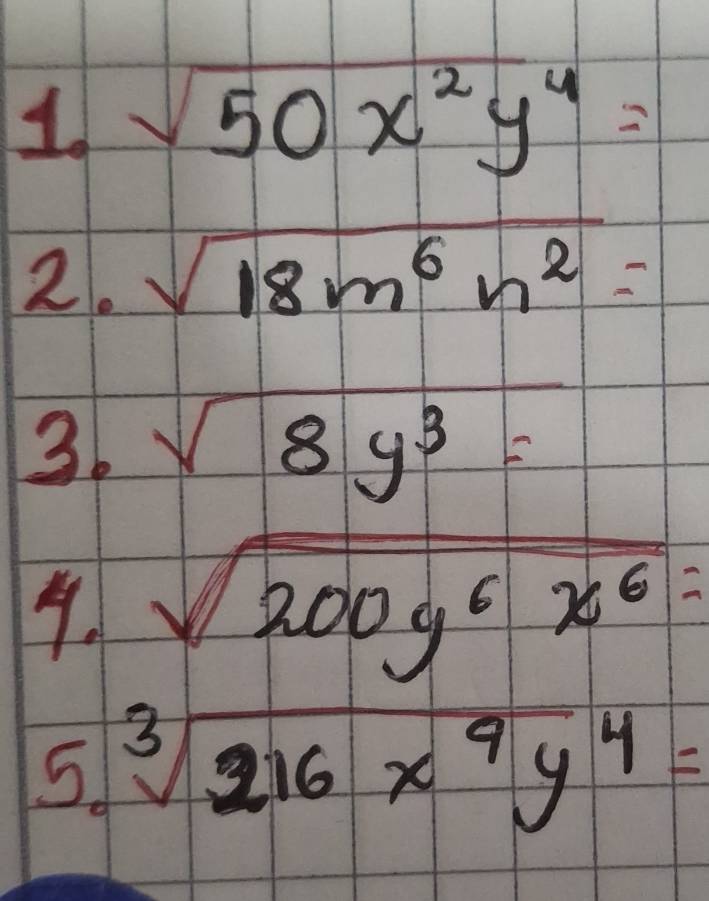 1. √50x²y⁴ =
2. √18m⁶n² =
3. √8y³ =
4. √200y⁶x⁶ =
5. ³√216x⁹y⁴ =